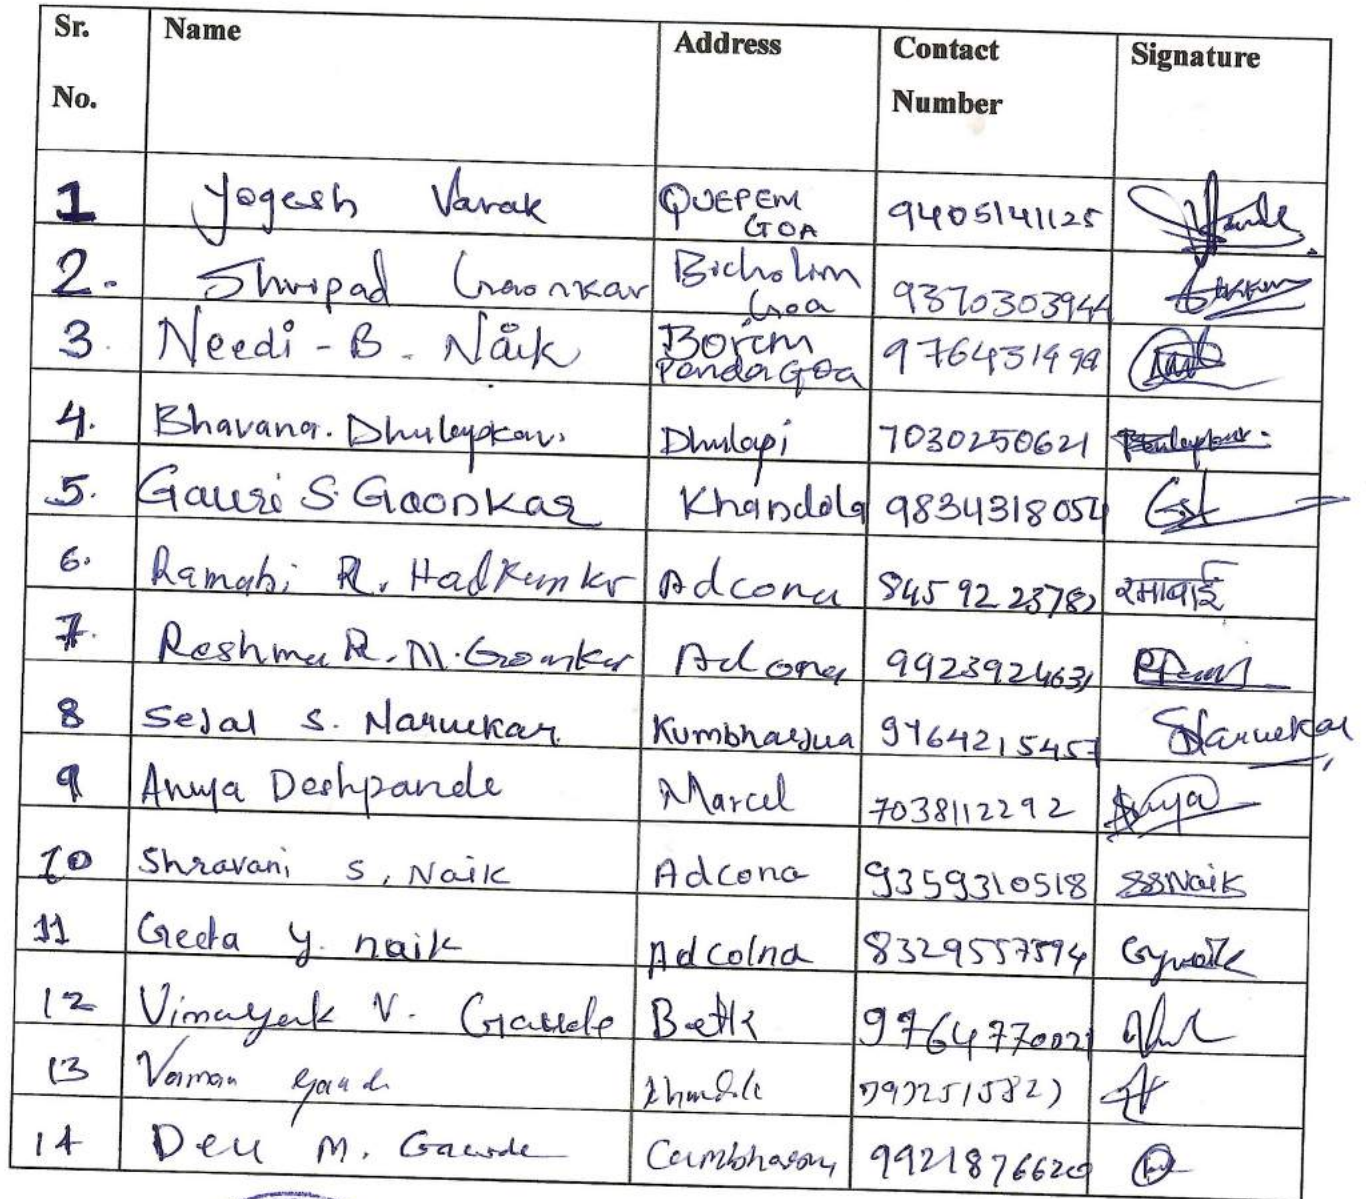 Sr. No. Name Address Contact Number Signature
1 Yogesh Varak QUEPEM GOA 9405141125
2. Shripad Gaonkar Bicholim Goa 9370303944
3. Needi - B. Naik Borim Ponda Goa 976431499
4. Bhavana. Dhuleypkar. Dhulapi 7030250621
5. Gauri S. Gaonkar Khandola 9834318054 Gst
6. Ramabi R. Hadkumkr Adcona 8459223782 रमाबाई
7. Reshma R. M. Gaonkar Adcona 9923924631
8 Sejal S. Narvekar Kumbharjua 9764215457 SNarvekar
9 Anuya Deshpande Marcel 7038112292 Anuya
10 Shravani S. Naik Adcona 9359310518 SSNaik
11 Geeta y. naik Adcolna 8329557594 Gynaik
12 Vinayak V. Gaude Betki 9764770021
13 Vaman Gaude
14 Deu M. Gawde Cumbharjua 9921876620